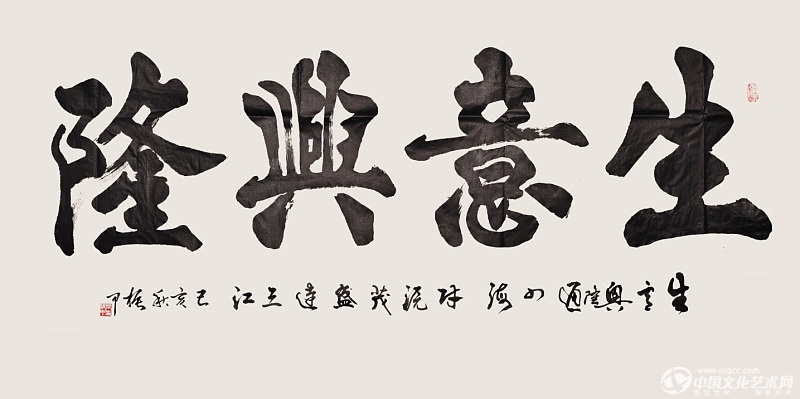 生意興隆
生意興隆通四海财源茂盛達三江己亥秋振
www.orgcc.com
中国文化艺术网